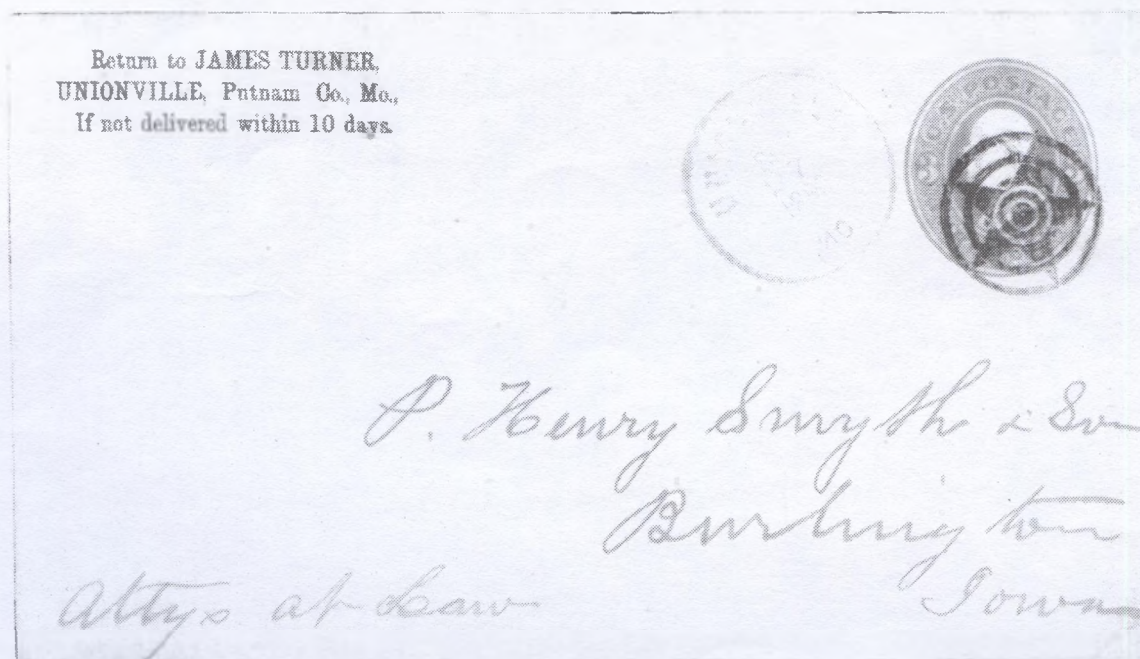 Return to JAMES TURNER,
UNIONVILLE, Putnam Co., Mo.,
If not delivered within 10 days.
U.S. POSTAGE
MO
P. Henry Smyth & Son
Burlington
Iowa
Attys at Law